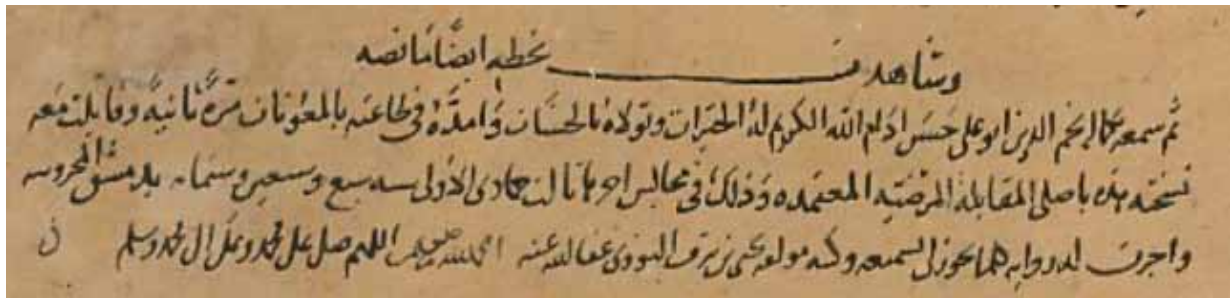 وشاهدت بخطه ايضا ما نصه
ثم سمعه عماد نجم الدين ابو علي حسن ادام الله الكريم له الخيرات وتولاه بالحسنات وامده في طاعته بالمعونات مرة ثانية وقابلت معه
نسخته هذه باصلي المقابلة المرضيه المعتمده وذلك في مجالس اخرها ثالث جمادى الاولى سنة سبع وستمايه بدمشق المحروسه
واجزت له روايه كلما يجوز لي تسميعه وكتبه مولفه يحيى بن شرف النووي عفا الله عنه الحمد لله اللهم صل على محمد وعلى ال محمد وسلم